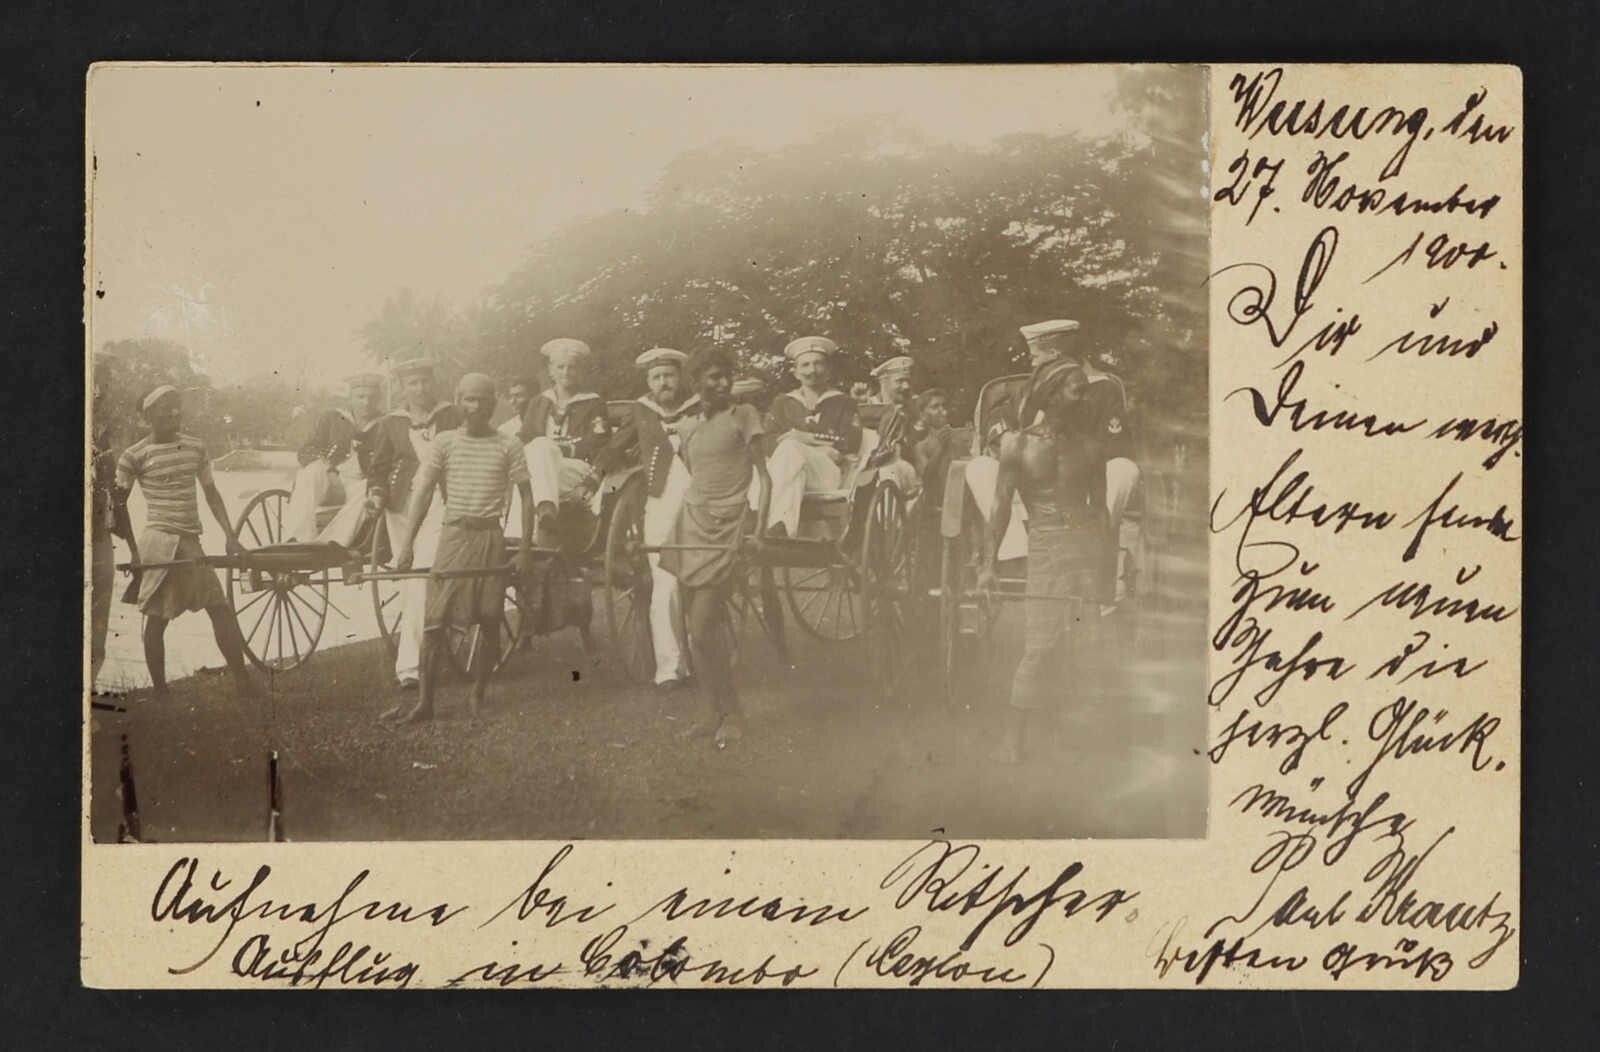 Wusung, den
27. November
1900.
Dir und
Deinen werth.
Eltern sende
zum neuen
Jahre die
herzl. Glück-
wünsche
Paul Krantz
besten Gruß
Aufnahme bei einem Ritscher-
Ausflug in Colombo (Ceylon)